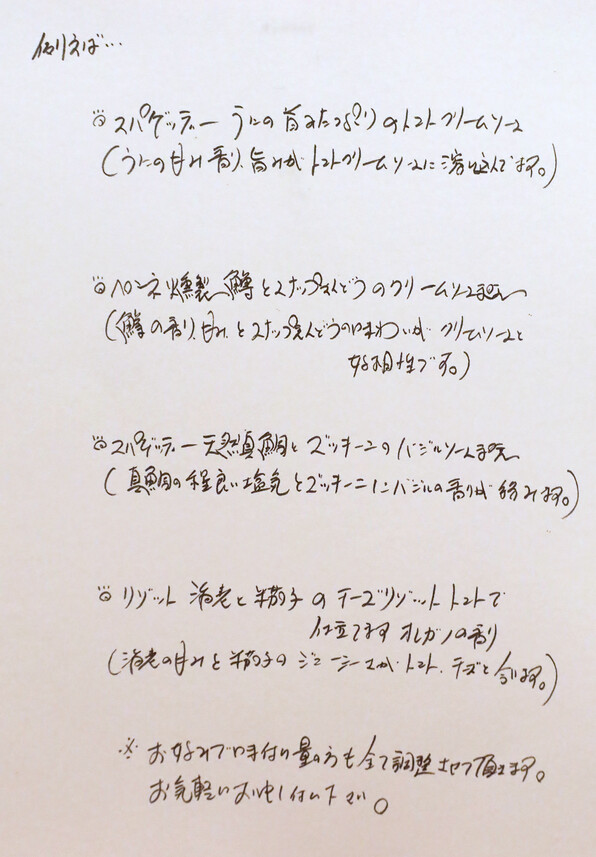 例えば…
スパゲッティー うにの旨みたっぷりのトマトクリームソース
(うにの甘み 香り、旨みがトマトクリームソースに溶け込んでます。)
ペンネ 燻製鱒とスナップえんどうのクリームソース
(鱒の香り、甘みとスナップえんどうの味わいがクリームソースと
好相性です。)
スパゲッティー 天然真鯛とズッキーニのバジルソース
(真鯛の程良い塩気とズッキーニにバジルの香りが絡みます。)
リゾット 海老と茄子のチーズリゾット トマトで
仕立てます オレガノの香り
(海老の甘みと茄子のジューシーさがトマト、チーズと合います。)
※ お好みで味付け 量の方も全て調整させて頂きます。
お気軽にお申し付け下さい。